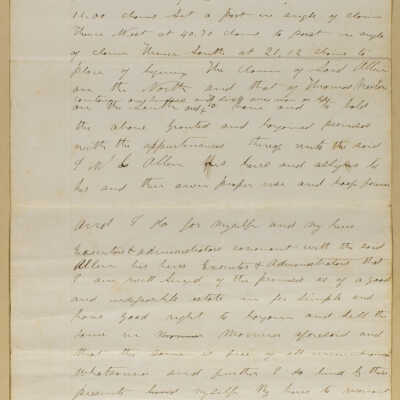 11.00 chains Set a post in angle of claim
Thence West at 40.70 chains to post in angle
of claim Thence South at 21.12 chains to
place of begining The claim of Said Allen
on the North and that of Thomas
on the South and to have and to hold
the above Granted and bargained premises
with the appurtenances thereof unto the said
Allen his heirs and assigns to
his and their own proper use and
And I do for myself and my heirs
Executors & administrators covenant with the said
Allen his heirs Executors & Administrators that
I am well Seized of the premises as of a good
and indefeasible estate in fee Simple and
have good right to bargain and sell the
same in manner aforesaid and
that the same is free of all
Whatsoever and further I do bind by these
presents myself My heirs to warrant